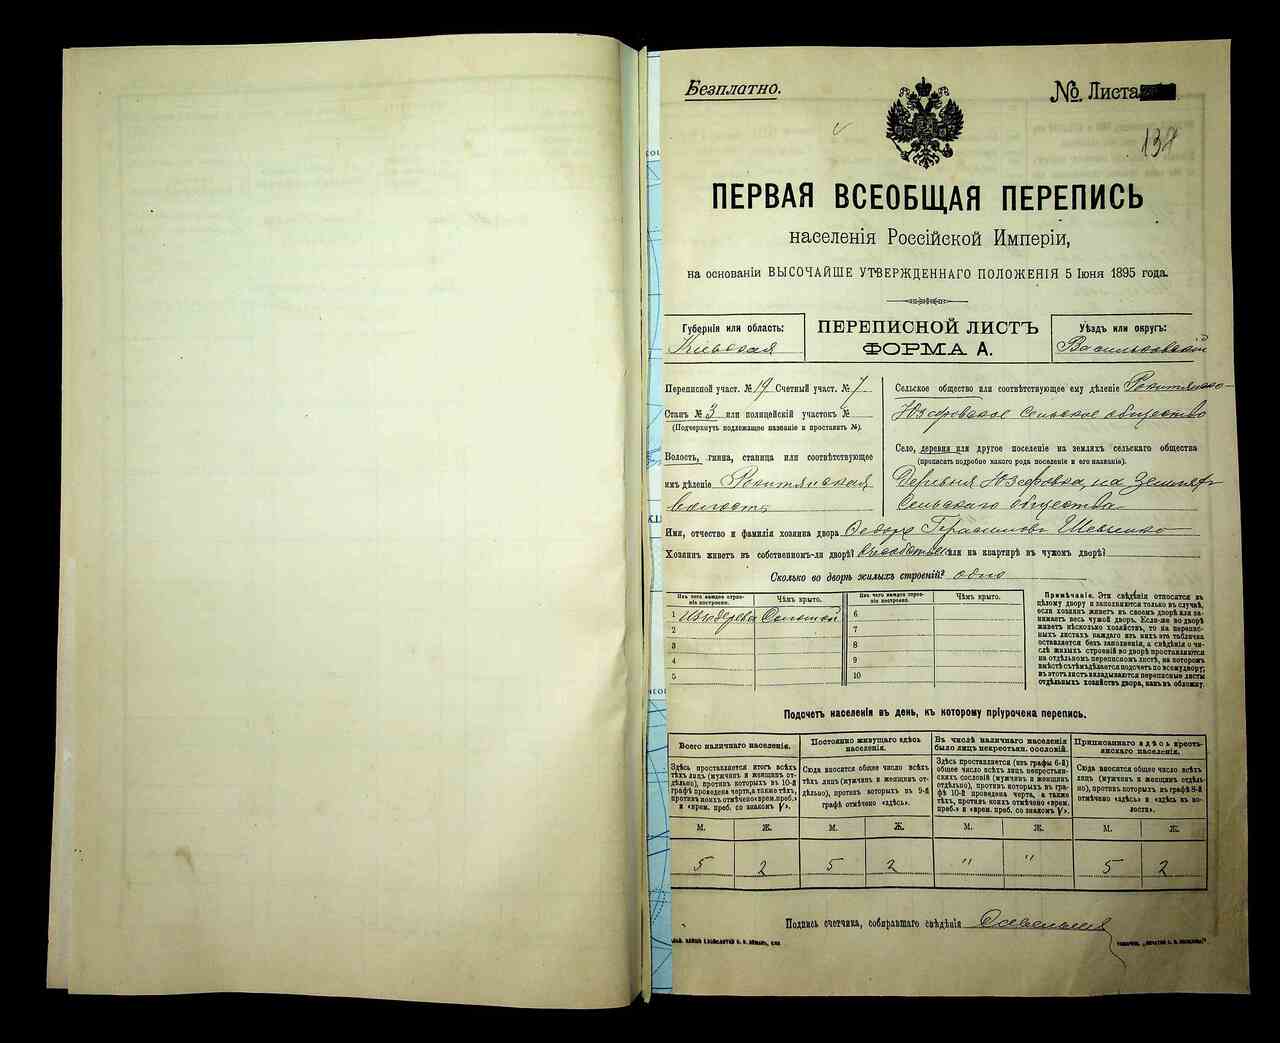 Безплатно.
№ Листа
138
ПЕРВАЯ ВСЕОБЩАЯ ПЕРЕПИСЬ
населенія Россійской Имперіи,
на основаніи ВЫСОЧАЙШЕ УТВЕРЖДЕННАГО ПОЛОЖЕНІЯ 5 Іюня 1895 года.
Губернія или область:
Кіевская
ПЕРЕПИСНОЙ ЛИСТЪ
ФОРМА А.
Уѣздъ или округъ:
Васильковскій
Переписной участ. № 19 Счетный участ. № 7
Станъ № 3 или полицейскій участокъ №
(Подчеркнуть подлежащее названіе и проставить №).
Волость, гмина, станица или соотвѣтствующее
имъ дѣленіе Рокитянская
волость
Сельское общество или соотвѣтствующее ему дѣленіе Рокитянско-
Юзефовское сельское общество
Село, деревня или другое поселеніе на земляхъ сельскаго общества
(прописать подробно какого рода поселеніе и его названіе).
Деревня Юзефовка, на земляхъ
сельскаго общества
Имя, отчество и фамилія хозяина двора Федоръ Герасимовъ Шевченко
Хозяинъ живетъ въ собственномъ-ли дворѣ? или на квартирѣ въ чужомъ дворѣ?
Сколько во дворѣ жилыхъ строеній? одно
Изъ чего каждое строеніе построено. Чѣмъ крыто. Изъ чего каждое строеніе построено. Чѣмъ крыто.
1 Изъ дерева Соломой 6
2 7
3 8
4 9
5 10
Примѣчаніе. Эти свѣдѣнія относятся къ
цѣлому двору и заполняются только въ случаѣ,
если хозяинъ живетъ въ своемъ дворѣ или за-
нимаетъ весь чужой дворъ. Если-же во дворѣ
живетъ нѣсколько хозяйствъ, то на перепис-
ныхъ листахъ каждаго изъ нихъ эта табличка
оставляется безъ заполненія, а свѣдѣнія о чи-
слѣ жилыхъ строеній во дворѣ проставляются
на отдѣльномъ переписномъ листѣ, на которомъ
вмѣстѣ съ тѣмъ дѣлается подсчетъ по всему двору;
въ этотъ листъ вкладываются переписные листы
отдѣльныхъ хозяйствъ двора, какъ въ обложку.
Подсчетъ населенія въ день, къ которому пріурочена перепись.
Всего наличнаго населенія.
Здѣсь проставляется итогъ всѣхъ
тѣхъ лицъ (мужчинъ и женщинъ от-
дѣльно), противъ которыхъ въ 10-й
графѣ проведена черта, а также тѣхъ,
противъ коихъ отмѣчено «врем. преб.»
и «врем. преб. со знакомъ V».
Постоянно живущаго здѣсь
населенія.
Сюда вносится общее число всѣхъ
тѣхъ лицъ (мужчинъ и женщинъ от-
дѣльно), противъ которыхъ въ 9-й
графѣ отмѣчено «здѣсь».
Въ числѣ наличнаго населенія
было лицъ некрестьян. сословій.
Здѣсь проставляется (изъ графы 6-й)
общее число всѣхъ лицъ некрестьян-
скихъ сословій (мужчинъ и женщинъ
отдѣльно), противъ которыхъ въ гра-
фѣ 10-й проведена черта, а также
тѣхъ, противъ коихъ отмѣчено «врем.
преб.» и «врем. преб. со знакомъ V».
Приписаннаго здѣсь кресть-
янскаго населенія.
Сюда вносится общее число всѣхъ
лицъ (мужчинъ и женщинъ отдѣль-
но), противъ которыхъ въ графѣ 8-й
отмѣчено «здѣсь» и «здѣсь въ во-
лости».
М. Ж. М. Ж. М. Ж. М. Ж.
5 2 5 2 " " 5 2
Подпись счетчика, собиравшаго свѣдѣнія